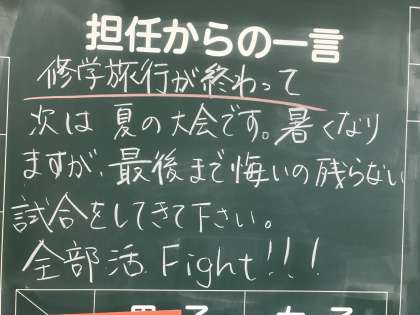 担任からの一言
修学旅行が終わって
次は夏の大会です。暑くなり
ますが、最後まで悔いの残らない
試合をしてきて下さい。
全部活 Fight!!!
男子 女子